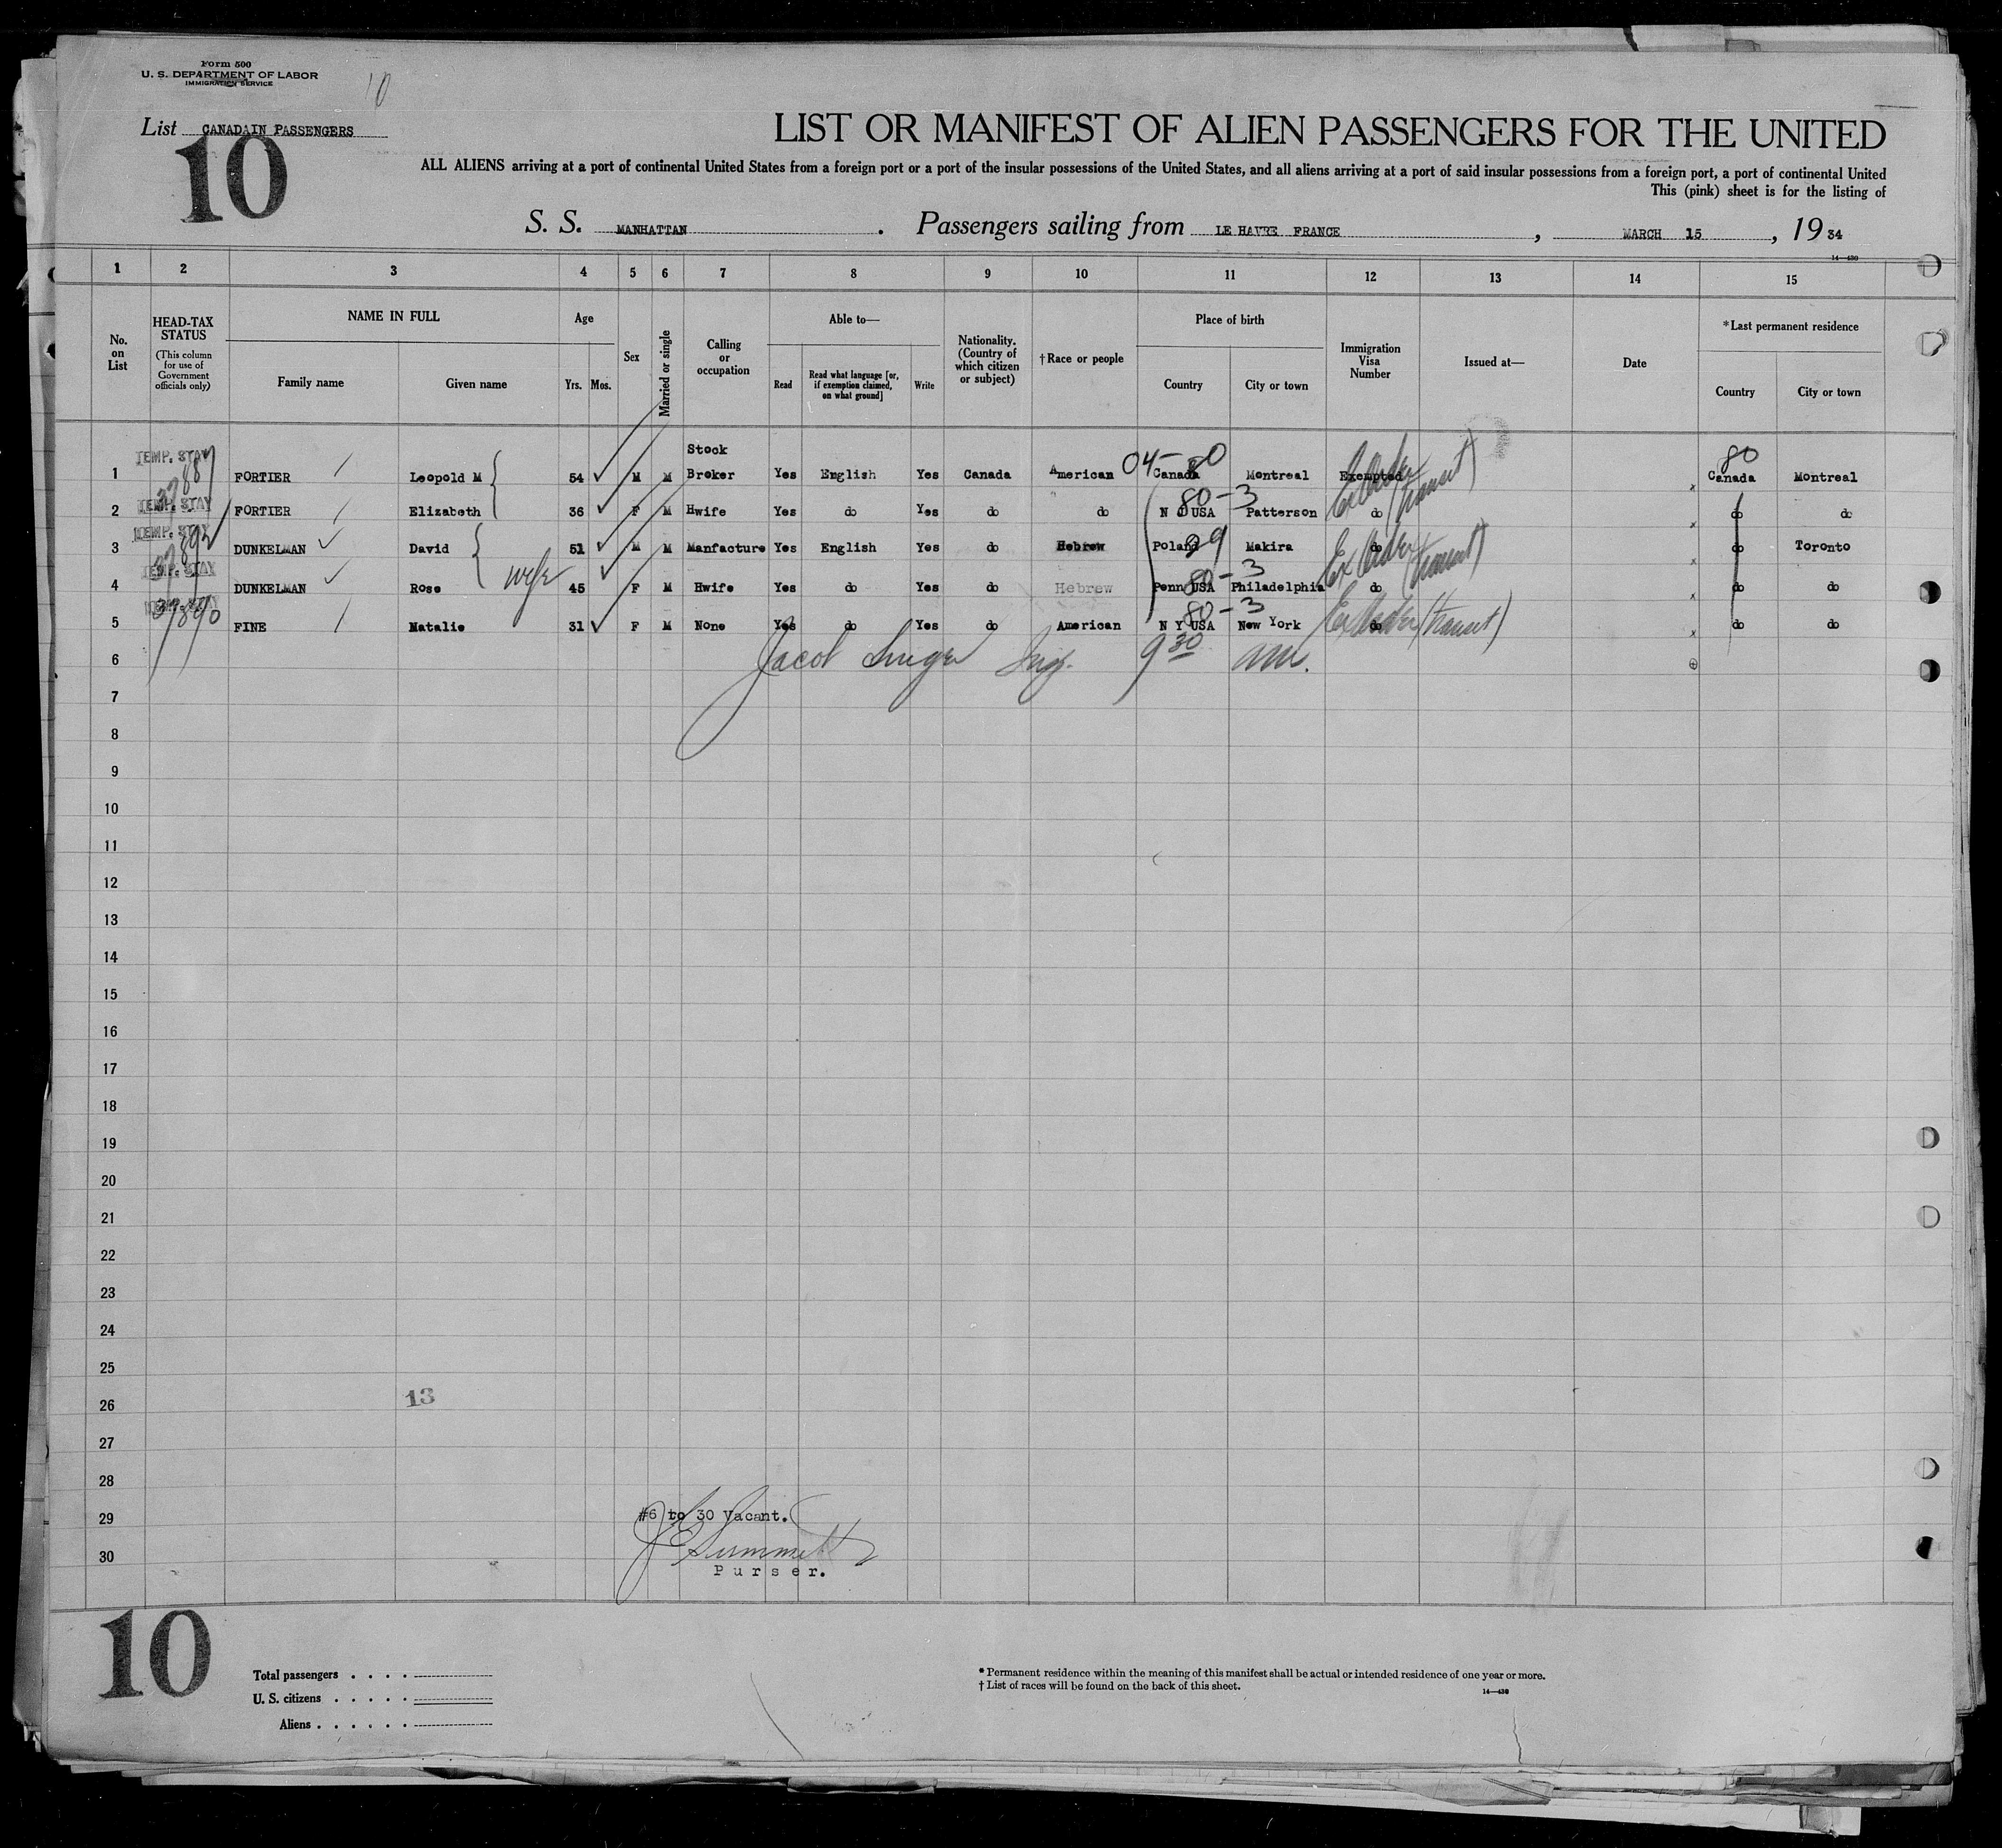 Form 500
U. S. DEPARTMENT OF LABOR
IMMIGRATION SERVICE
10
List CANADAIN PASSENGERS
10
LIST OR MANIFEST OF ALIEN PASSENGERS FOR THE UNITED
ALL ALIENS arriving at a port of continental United States from a foreign port or a port of the insular possessions of the United States, and all aliens arriving at a port of said insular possessions from a foreign port, a port of continental United
This (pink) sheet is for the listing of
S. S. MANHATTAN . Passengers sailing from LE HAVRE FRANCE , MARCH 15 , 19 34
14—430
1 2 3 4 5 6 7 8 9 10 11 12 13 14 15
No. on List
HEAD-TAX STATUS (This column for use of Government officials only)
NAME IN FULL
Family name Given name
Age
Yrs. Mos.
Sex
Married or single
Calling or occupation
Able to—
Read
Read what language [or, if exemption claimed, on what ground]
Write
Nationality. (Country of which citizen or subject)
†Race or people
Place of birth
Country City or town
Immigration Visa Number
Issued at—
Date
*Last permanent residence
Country City or town
1 TEMP. STAY FORTIER Leopold M 54 M M Stock Broker Yes English Yes Canada American 04-80 Canada Montreal Exempted (transit) 80 Canada Montreal
2 TEMP. STAY FORTIER Elizabeth 36 F M Hwife Yes do Yes do do 80-3 N J USA Patterson do do do
3 TEMP. STAY DUNKELMAN David 51 M M Manfacture Yes English Yes do Hebrew Poland 29 Makira do (transit) do Toronto
4 TEMP. STAY DUNKELMAN Rose wife 45 F M Hwife Yes do Yes do Hebrew 80-3 Penn USA Philadelphia do do do
5 TEMP. STAY 37890 FINE Natalie 31 F M None Yes do Yes do American 80-3 N Y USA New York do (transit) do do
6 Jacob 9 30 am.
7
8
9
10
11
12
13
14
15
16
17
18
19
20
21
22
23
24
25
26 13
27
28
29 #6 to 30 Vacant.
30
Purser.
10
Total passengers . . . .
U. S. citizens . . . . .
Aliens . . . . . .
* Permanent residence within the meaning of this manifest shall be actual or intended residence of one year or more.
† List of races will be found on the back of this sheet.
14—430